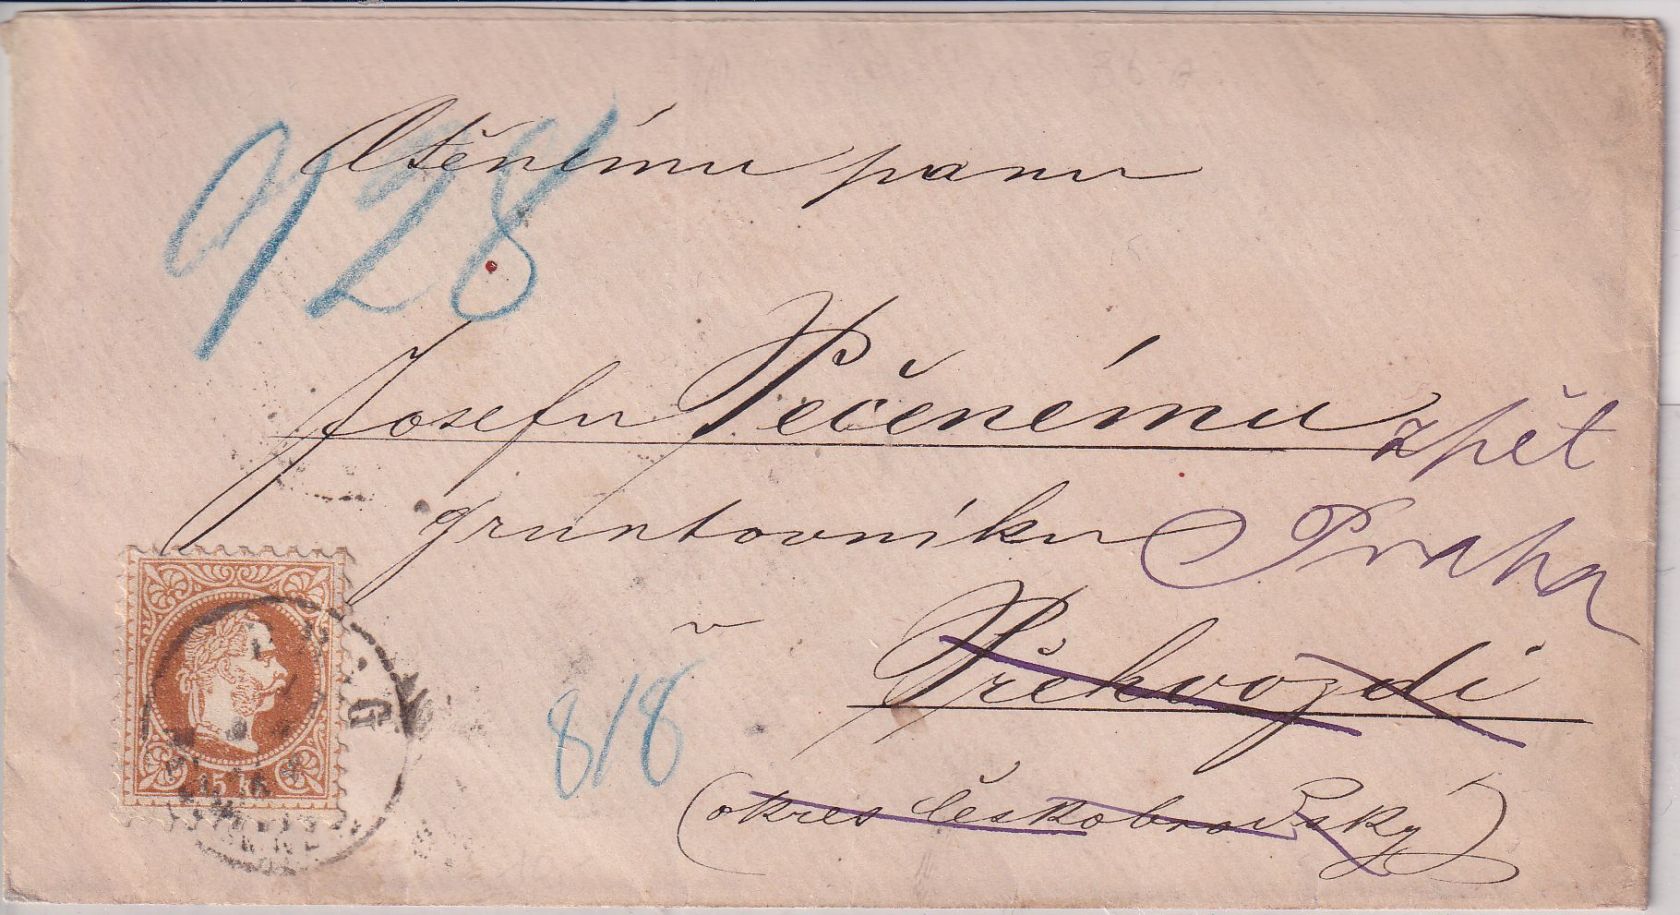 928
Ctěnímu panu
Josefu Pečenému
zpět
gruntovníku
Praha
v Přehvozdi
8/8
(okres českobrodský)
15